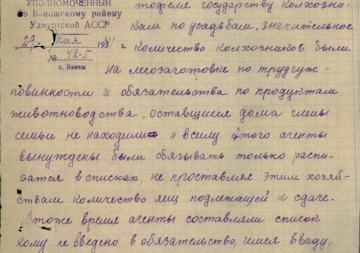 УПОЛНОМОЧЕННЫЙ
по Вавожскому району
Удмуртской АССР
мая 193
№ 43-5
с. Вавож
государству колхозно-
кам по усадьбам, значительное
количество колхозников были
на лесозаготовке по трудгуж-
повинности и обязательства по продуктам
животноводства, оставшиеся дома члены
семьи не находили и всему этого агенты
вынуждены были обязывать только распи-
ватся в списках не проставляя этим хозяй-
ствам количество яиц подлежащей к сдаче.
Втоже время агенты составляли список
кому не введено в обязательство, имея ввиду,